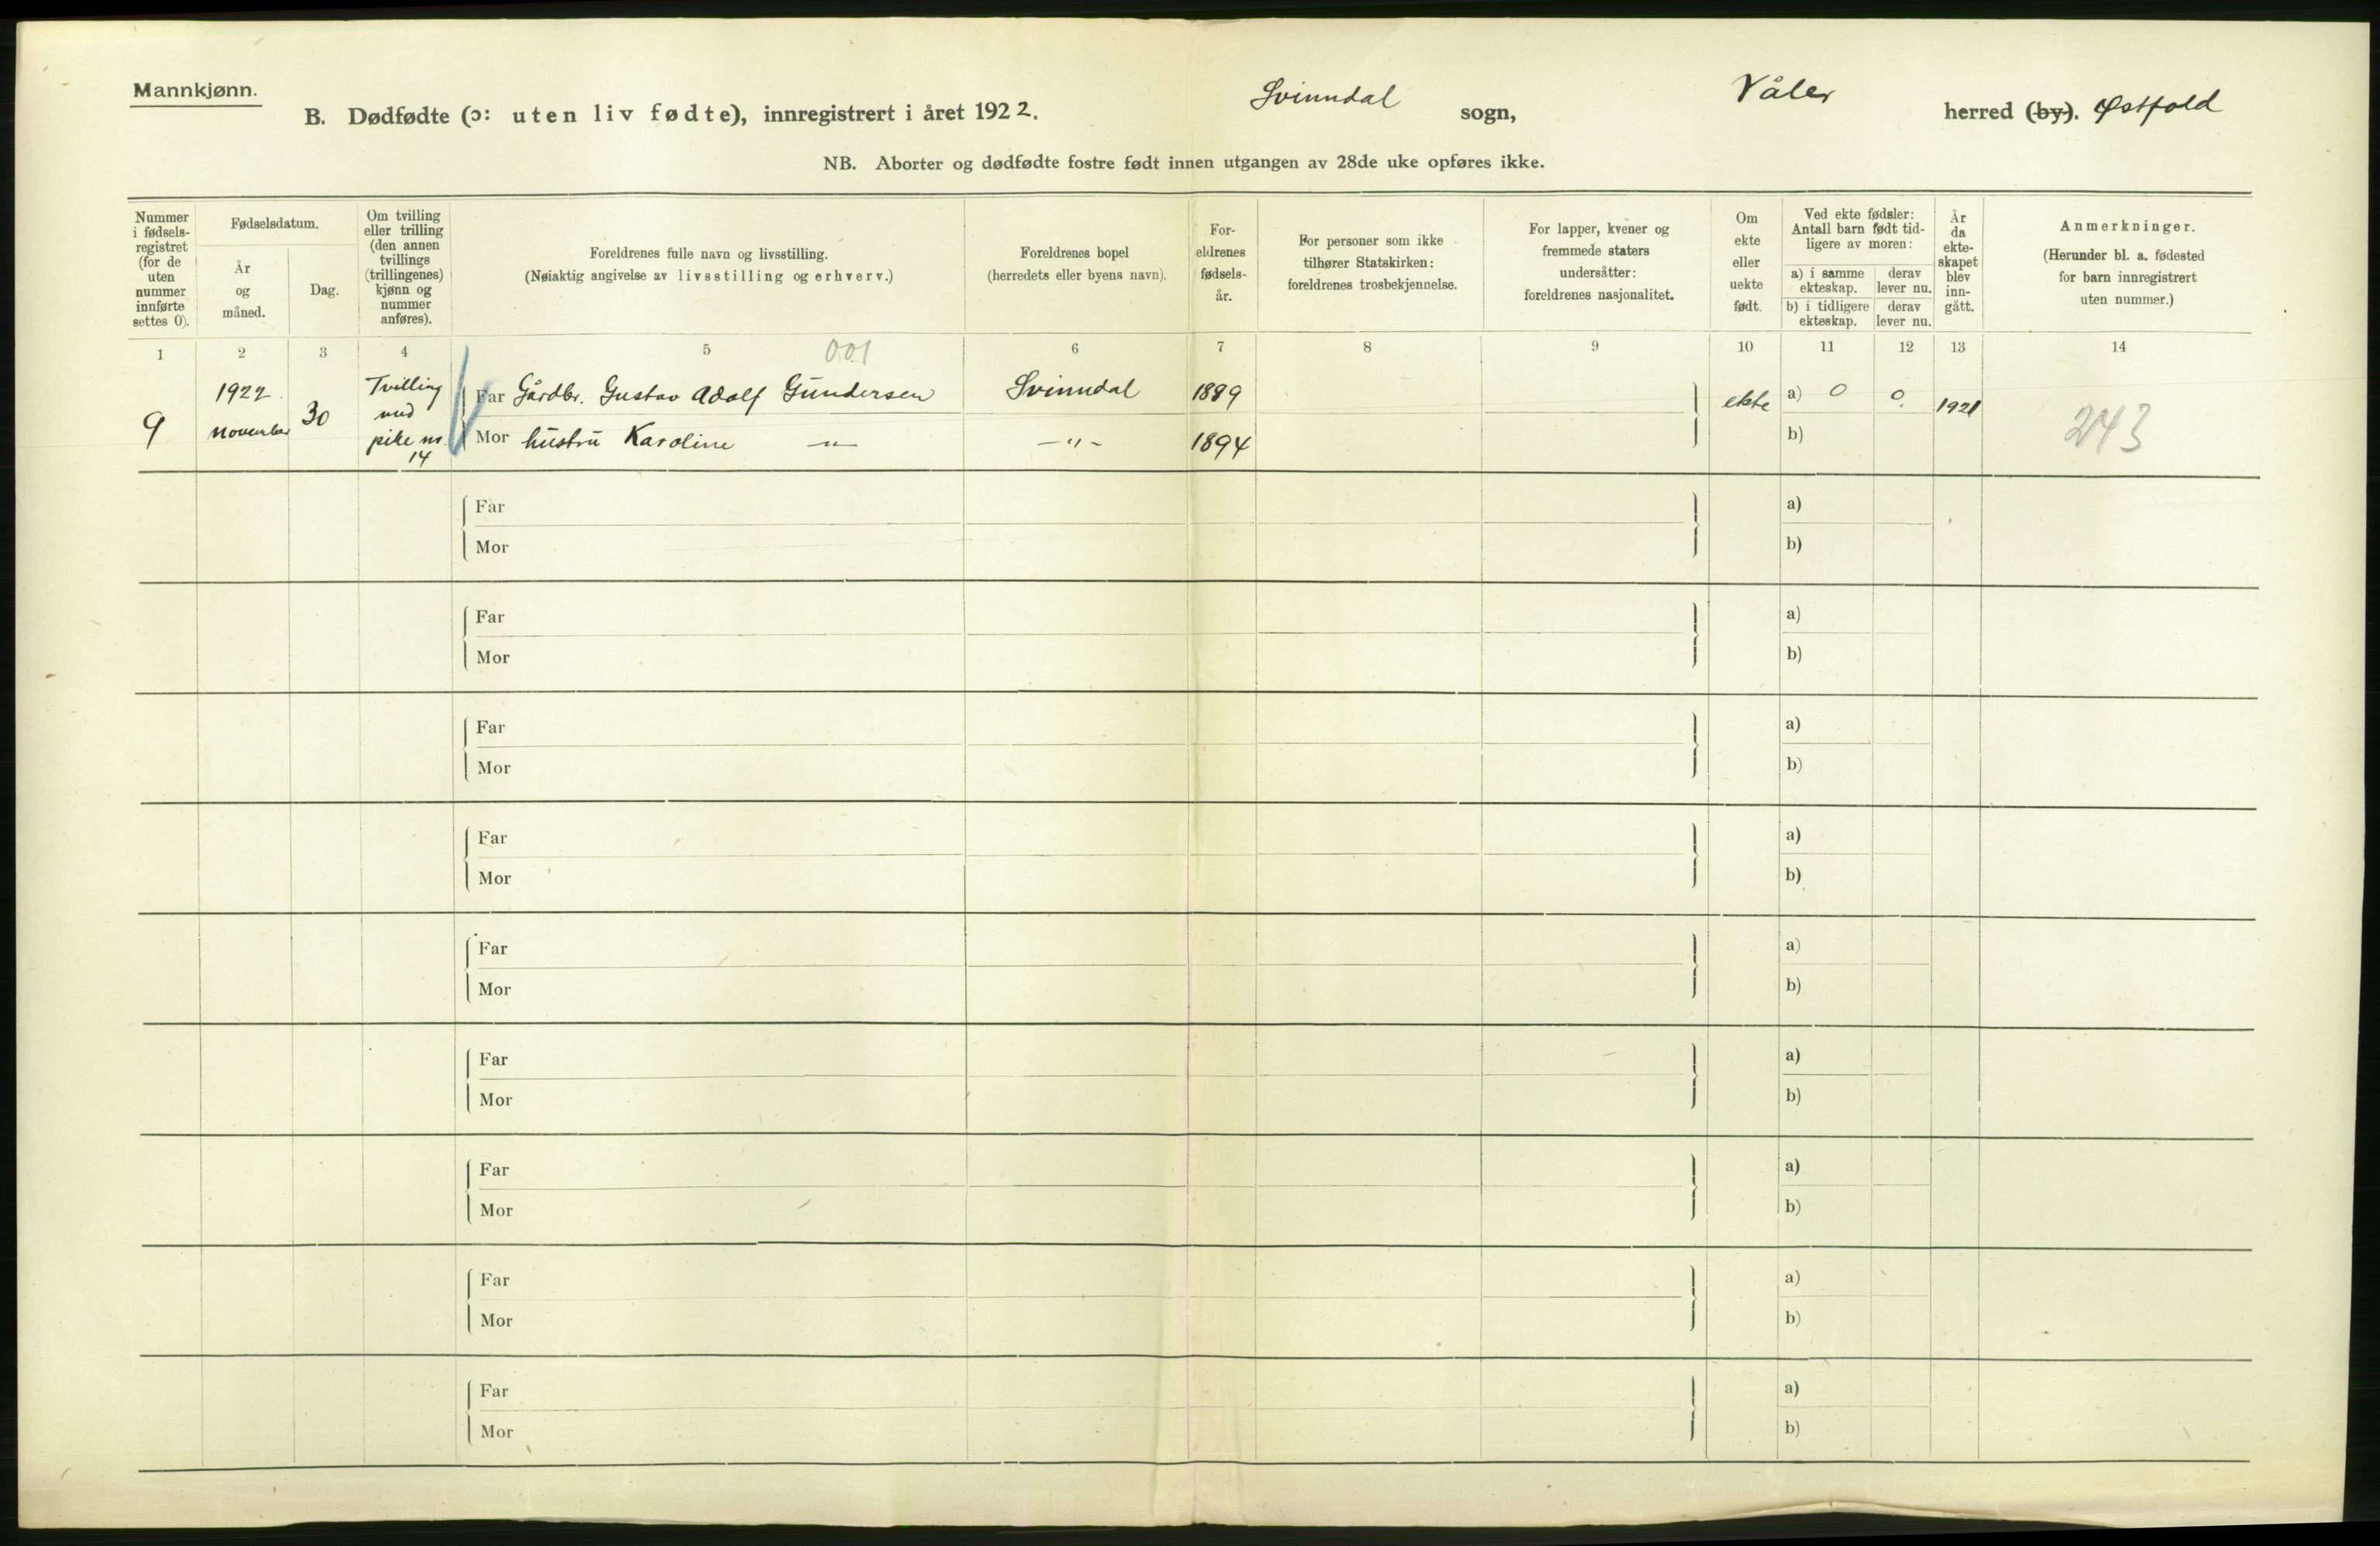 Mannkjønn.
B. Dødfødte (ɔ: uten liv fødte), innregistrert i året 1922. Svinndal sogn, Våler herred (by). Østfold
NB. Aborter og dødfødte fostre født innen utgangen av 28de uke opføres ikke.
Nummer
i fødsels-
registret
(for de
uten
nummer
innførte
settes 0).
Fødselsdatum.
År
og
måned.
Dag.
Om tvilling
eller trilling
(den annen
tvillings
(trillingenes)
kjønn og
nummer
anføres).
Foreldrenes fulle navn og livsstilling.
(Nøiaktig angivelse av livsstilling og erhverv.)
Foreldrenes bopel
(herredets eller byens navn).
For-
eldrenes
fødsels-
år.
For personer som ikke
tilhører Statskirken:
foreldrenes trosbekjennelse.
For lapper, kvener og
fremmede staters
undersåtter:
foreldrenes nasjonalitet.
Om
ekte
eller
uekte
født.
Ved ekte fødsler:
Antall barn født tid-
ligere av moren:
a) i samme
ekteskap.
derav
lever nu.
b) i tidligere
ekteskap.
derav
lever nu.
År
da
ekte-
skapet
blev
inn-
gått.
Anmerkninger.
(Herunder bl. a. fødested
for barn innregistrert
uten nummer.)
1 2 3 4 5 001 6 7 8 9 10 11 12 13 14
9
1922
November
30
Tvilling
med
pike nr
14
Far Gårdbr. Gustav Adolf Gundersen Svinndal 1889
Mor hustru Karoline —"— —"— 1894
ekte
a) 0 0
b)
1921
243
Far a)
Mor b)
Far a)
Mor b)
Far a)
Mor b)
Far a)
Mor b)
Far a)
Mor b)
Far a)
Mor b)
Far a)
Mor b)
Far a)
Mor b)
Far a)
Mor b)